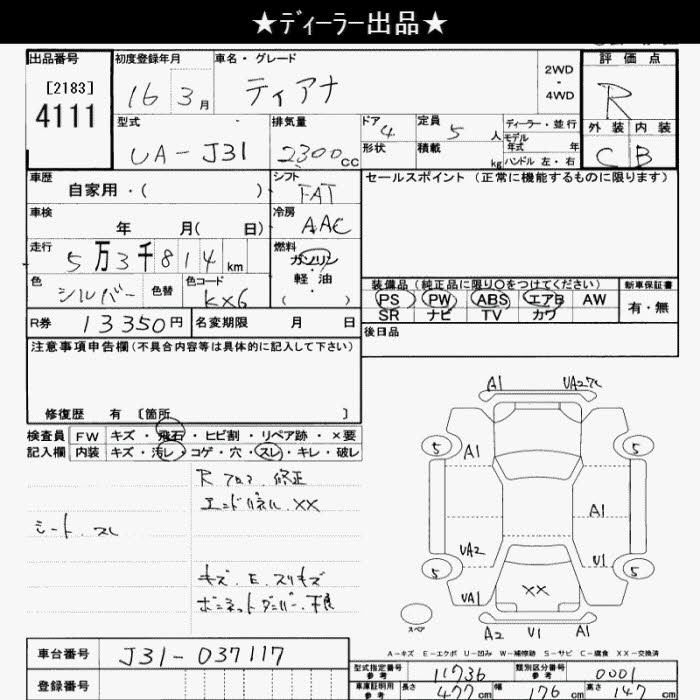 ★ディーラー出品★
出品番号 初度登録年月 車名・グレード 2WD・4WD 評価点
[2183] 4111 16 3月 ティアナ R
型式 排気量 ドア 4 定員 5人 ディーラー・並行 外装 内装
UA-J31 2300cc 形状 積載 kg モデル年式 年 C B
ハンドル 左・右
車歴 自家用・( ) シフト FAT セールスポイント (正常に機能するものに限ります)
車検 年 月( 日) 冷房 AAC
走行 5万3千814km 燃料 ガソリン・軽油・( )
色 シルバー 色替 色コード KX6 装備品 (純正品に限り○をつけてください) 新車保証書
PS PW ABS エアB AW 有・無
SR ナビ TV カワ
R券 13350円 名変期限 月 日 後日品
注意事項申告欄(不具合内容等は具体的に記入して下さい)
修復歴 有 〔箇所 〕
検査員 FW キズ・飛石・ヒビ割・リペア跡・×要
記入欄 内装 キズ・汚レ・コゲ・穴・スレ・キレ・破レ
R フロア 修正
エンドパネル XX
シート スレ
キズ.E.スリキズ
ボンネットダンパー 不良
A1 UA2
5 A1 5
A1
UA2 U1
5 XX 5
UA1
スペア A2 U1 A1
A-キズ E-エクボ U-凹み W-補修跡 S-サビ C-腐食 XX-交換済
車台番号 J31-037117
登録番号
型式指定番号 参考 11736 類別区分番号 参考 0001
車庫証明用 参考 長さ 477cm 幅 176cm 高さ 147cm